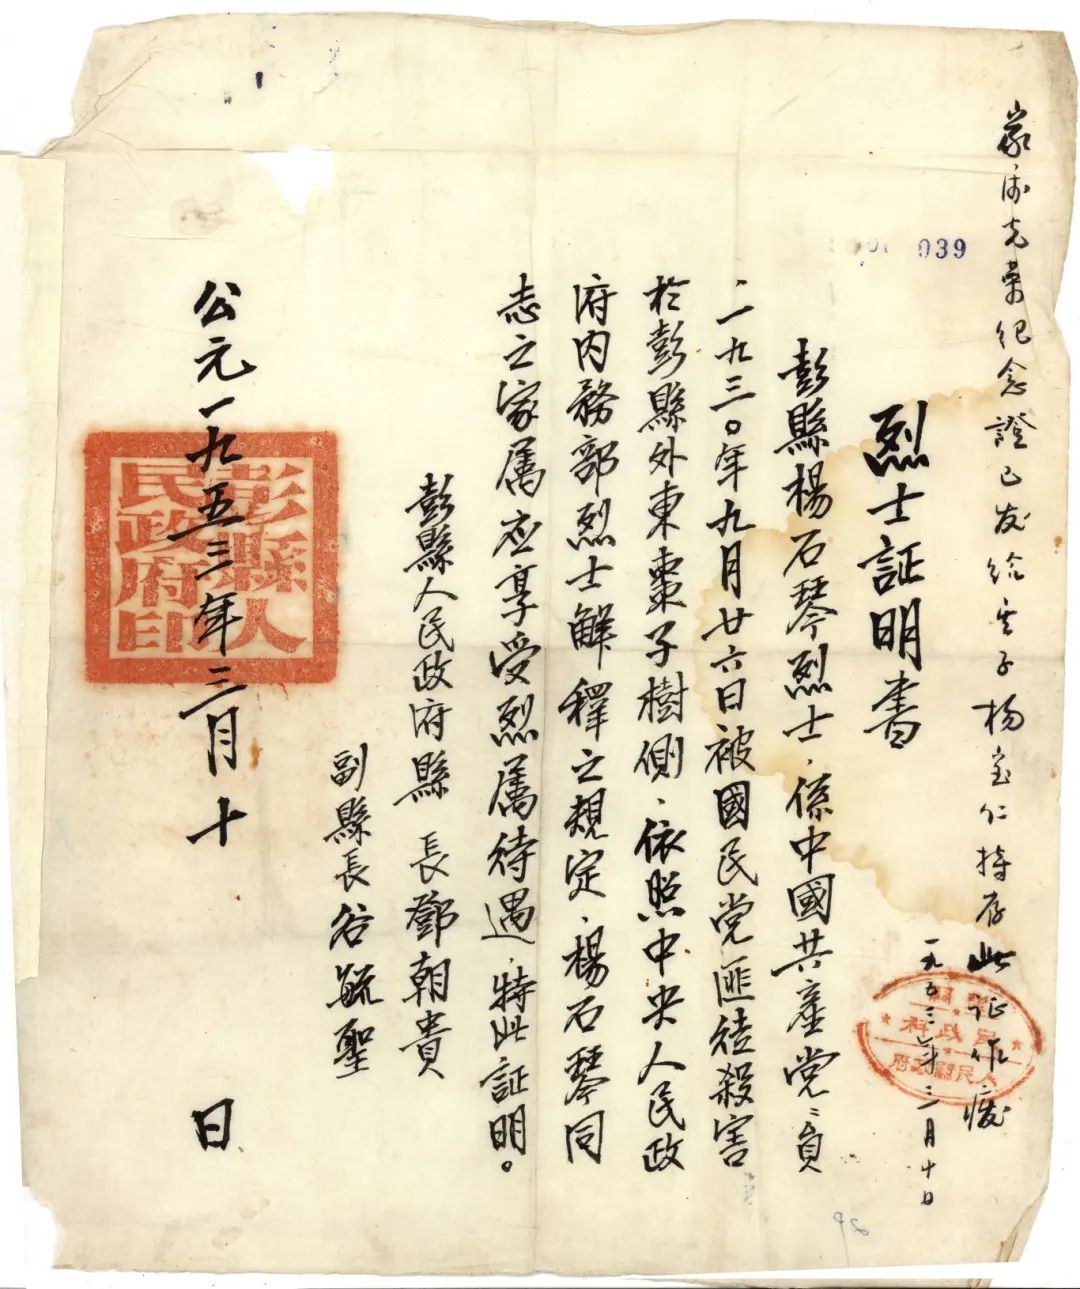 家属光荣纪念證已发给其子杨宝仁持存此证作废
一九五三年三月十日
039
烈士証明書
彭縣楊石琴烈士、係中國共產党党員
一九三〇年九月廿六日被國民党匪徒殺害
於彭縣外東棗子樹側、依照中央人民政
府内務部烈士解釋之規定、楊石琴同
志之家属应享受烈属待遇、特此証明。
彭縣人民政府縣長鄧朝貴
副縣長谷毓聖
公元一九五三年三月十日
彭縣人民政府印